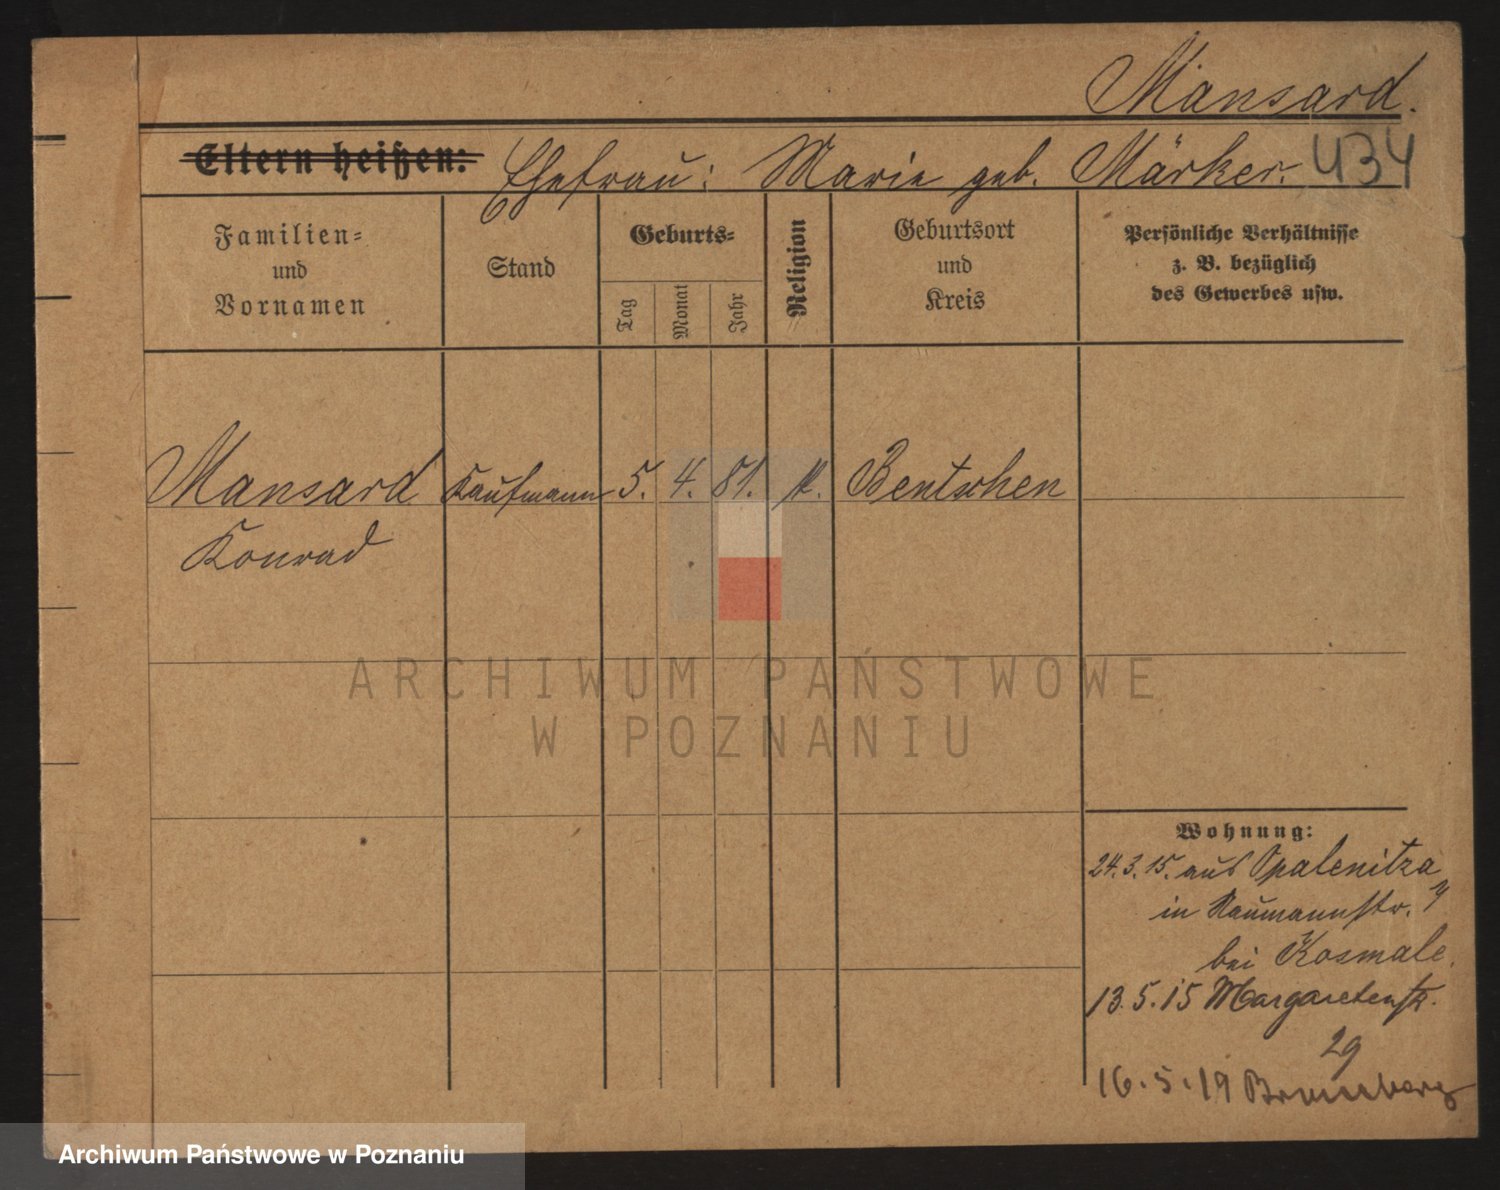 Mansard.
Eltern heißen: Ehefrau: Marie geb. Märker. 434
Familien=
und
Vornamen
Stand
Geburts=
Tag
Monat
Jahr
Religion
Geburtsort
und
Kreis
Persönliche Verhältnisse
z. B. bezüglich
des Gewerbes usw.
Mansard Kaufmann 5. 4. 81. k. Bentschen
Konrad
ARCHIWUM PAŃSTWOWE
W POZNANIU
Wohnung:
24.3.15. aus Opalenitza
in Naumannstr. 7
bei Kosmale.
13.5.15 Margaretenstr.
29
16.5.19 Bromberg
Archiwum Państwowe w Poznaniu